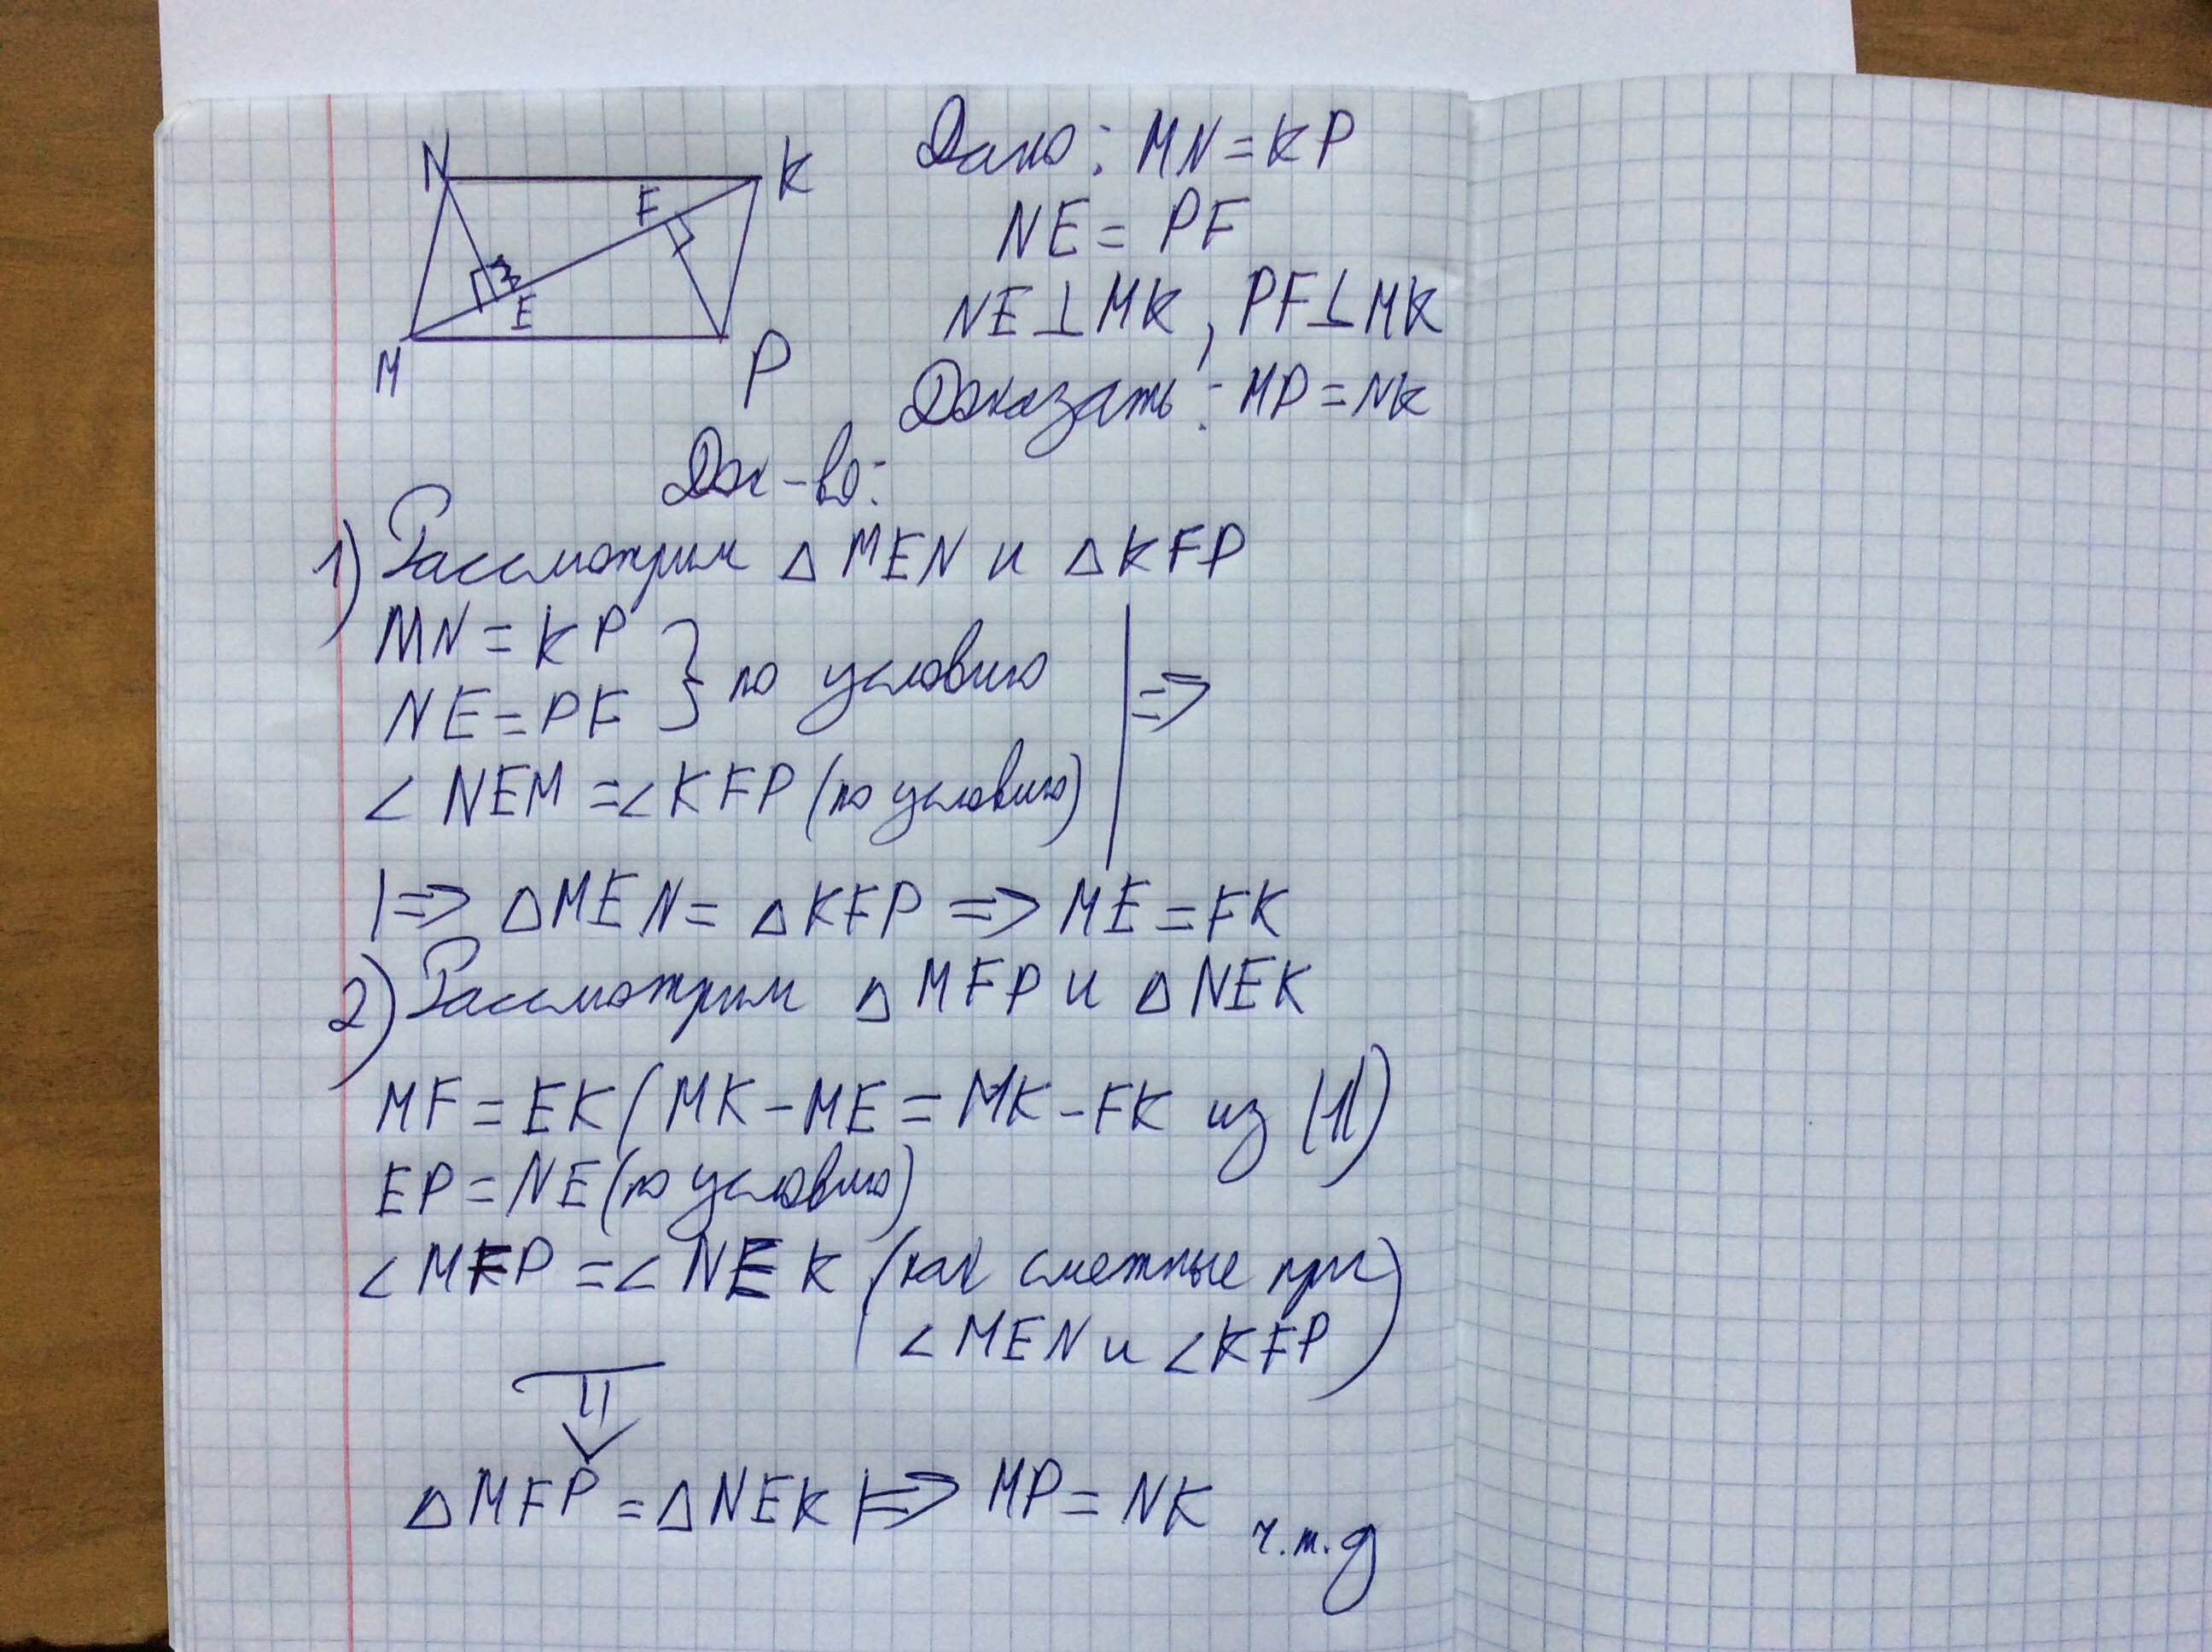 N
K
F
E
M
P
Дано: MN = KP
NE = PF
NE ⊥ MK, PF ⊥ MK
Доказать: MP = NK
Док-во:
1) Рассмотрим △ MEN и △ KFP
MN = KP
NE = PF } по условию
∠ NEM = ∠ KFP (по условию) | =>
|=> △ MEN = △ KFP => ME = FK
2) Рассмотрим △ MFP и △ NEK
MF = EK (MK - ME = MK - FK из (1))
EP = NE (по условию)
∠ MFP = ∠ NEK (как смежные при
∠ MEN и ∠ KFP)
△ MFP = △ NEK |=> MP = NK ч.т.д